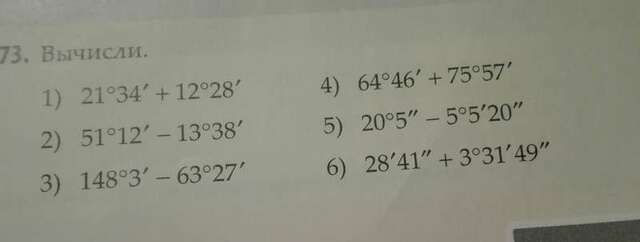 73. Вычисли.
1) 21°34′ + 12°28′
2) 51°12′ − 13°38′
3) 148°3′ − 63°27′
4) 64°46′ + 75°57′
5) 20°5″ − 5°5′20″
6) 28′41″ + 3°31′49″